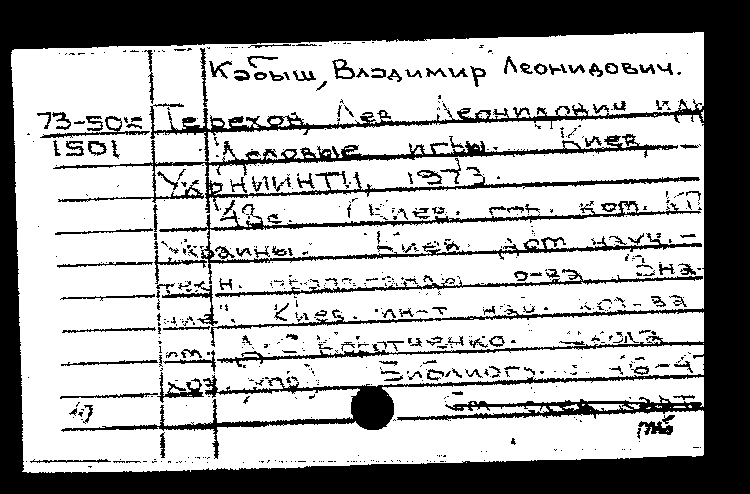 Кабыш, Владимир Леонидович.
73-50к Терехов, Лев Леонидович и др
1501 Деловые игры. Киев,
УкрНИИНТИ, 1973.
48с. (Киев. гор. ком. КП
Украины. Киев. дом науч.-
техн. пропаганды о-ва "Зна-
ние". Киев. ин-т нар. хоз-ва
им. Д. С. Коротченко. Школа
хоз. упр.) Библиогр.: с. 46-47
См. след. карт.